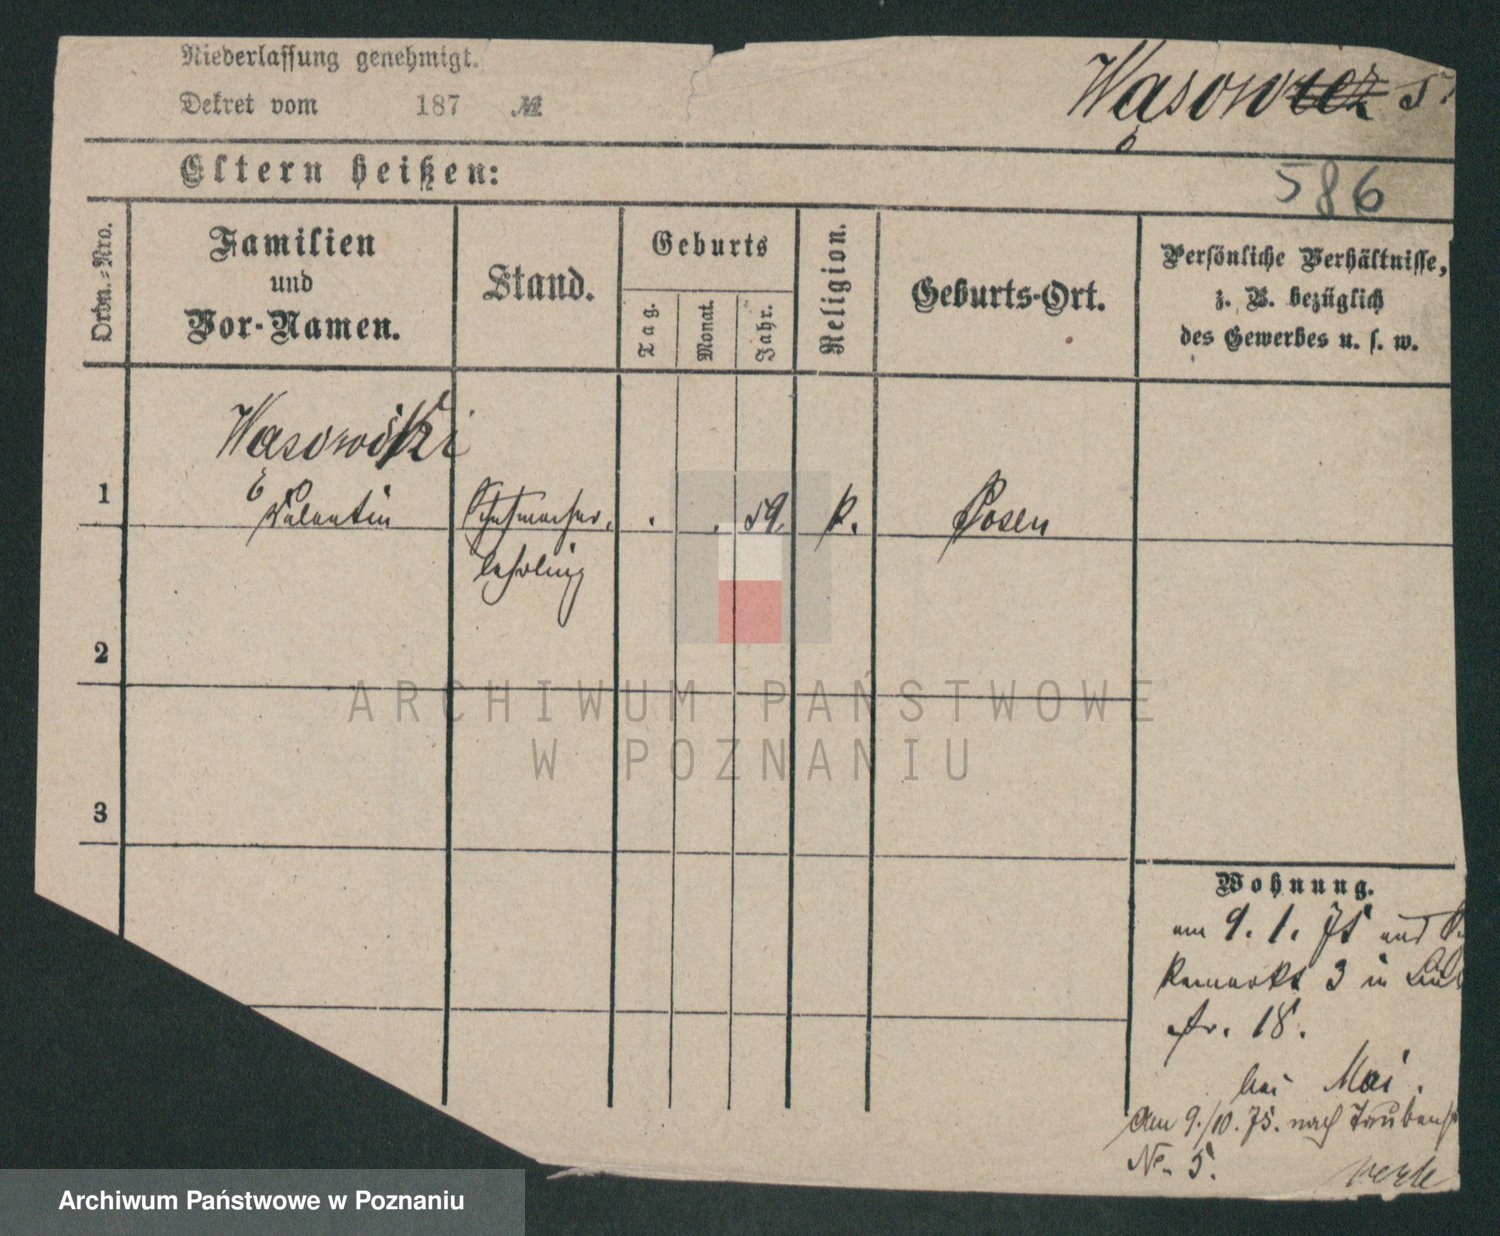 Niederlassung genehmigt.
Dekret vom 187 №
Wąsowicz
586
Eltern heißen:
Ordn.-Nro.
Familien
und
Vor-Namen.
Stand.
Geburts
Tag.
Monat.
Jahr.
Religion.
Geburts-Ort.
Persönliche Verhältnisse,
z. B. bezüglich
des Gewerbes u. s. w.
Wąsowski
1 Valentin Schuhmacher. . . 59. k. Posen
lehrling
2
3
Wohnung.
am 9. 1. 75 und
3 in
str. 18.
bei Mai.
Am 9./10. 75. nach Taubenst
No 5.
ARCHIWUM PAŃSTWOWE
W POZNANIU
Archiwum Państwowe w Poznaniu